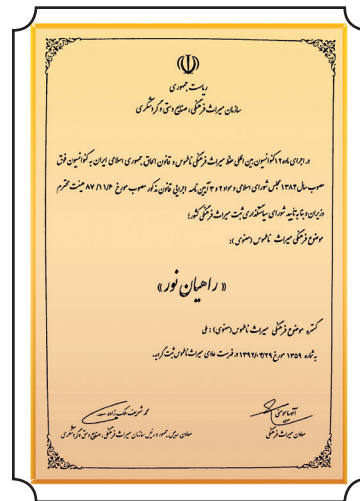 ریاست جمهوری
سازمان میراث فرهنگی، صنایع دستی و گردشگری
در اجرای ماده ۱۲ کنوانسیون بین المللی حفظ میراث فرهنگی ناملموس و قانون الحاق جمهوری اسلامی ایران به کنوانسیون فوق
مصوب سال ۱۳۸۴ مجلس شورای اسلامی و مواد ۲ و ۳ آیین نامه اجرایی قانون مذکور مصوب مورخ ۸۷/۱۱/۶ هیئت محترم
وزیران و بنا به تأیید شورای سیاستگذاری ثبت میراث فرهنگی کشور؛
موضوع فرهنگی میراث ناملموس (معنوی):
« راهیان نور »
گستره موضوع فرهنگی میراث ناملموس (معنوی): ملی
به شماره ۱۳۵۹ مورخ ۱۳۹۲/۰۴/۲۹ در فهرست عادی میراث ناملموس ثبت گردید.
معاون میراث فرهنگی
محمد شریف ملک زاده
معاون رییس جمهور و رییس سازمان میراث فرهنگی، صنایع دستی و گردشگری